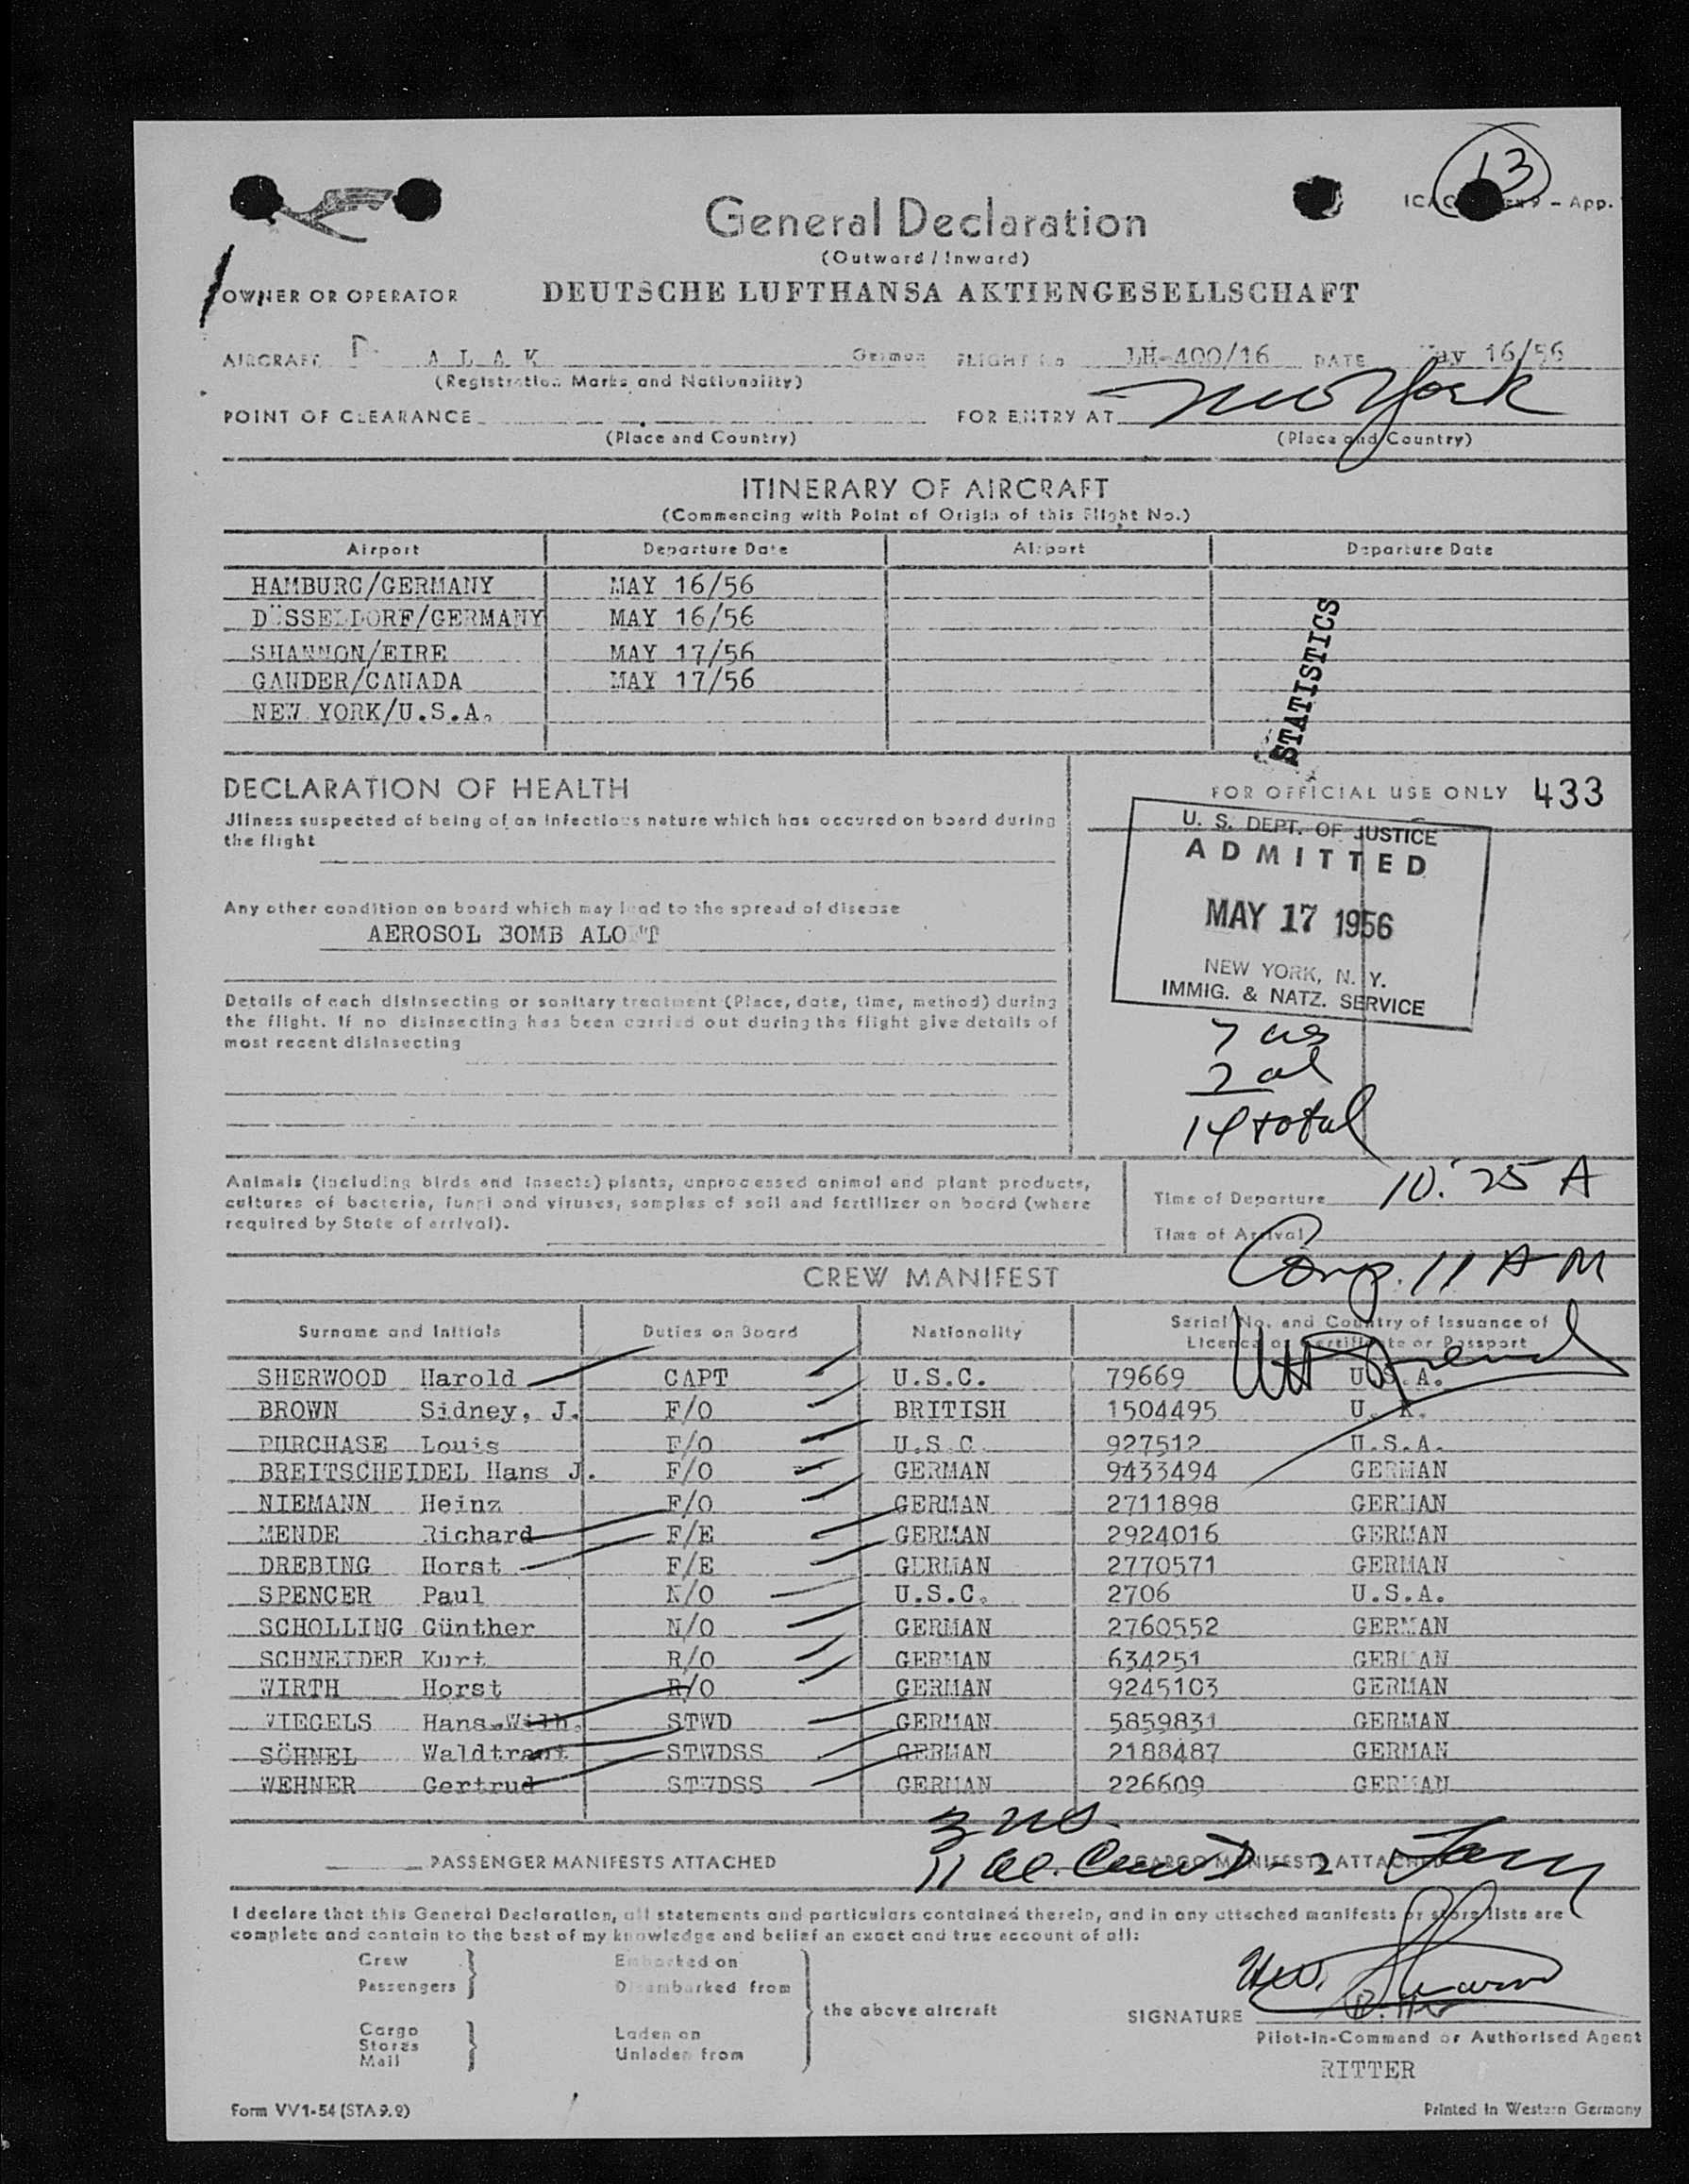 13
ICAO - App.
General Declaration
(Outward / Inward)
OWNER OR OPERATOR DEUTSCHE LUFTHANSA AKTIENGESELLSCHAFT
AIRCRAFT D- A L A K German FLIGHT No LH-400/16 DATE May 16/56
(Registration Marks and Nationality)
POINT OF CLEARANCE FOR ENTRY AT New York
(Place and Country) (Place and Country)
ITINERARY OF AIRCRAFT
(Commencing with Point of Origin of this Flight No.)
Airport Departure Date Airport Departure Date
HAMBURG/GERMANY MAY 16/56
DÜSSELDORF/GERMANY MAY 16/56
SHANNON/EIRE MAY 17/56
GANDER/CANADA MAY 17/56
NEW YORK/U.S.A.
STATISTICS
DECLARATION OF HEALTH
Jliness suspected of being of an infectious nature which has occured on board during
the flight
Any other condition on board which may lead to the spread of disease
AEROSOL BOMB ALOFT
Details of each disinsecting or sanitary treatment (Place, date, time, method) during
the flight. If no disinsecting has been carried out during the flight give details of
most recent disinsecting
FOR OFFICIAL USE ONLY 433
U. S. DEPT. OF JUSTICE
ADMITTED
MAY 17 1956
NEW YORK, N. Y.
IMMIG. & NATZ. SERVICE
7 us
al
14 total
Animals (including birds and insects) plants, unprocessed animal and plant products,
cultures of bacteria, fungi and viruses, samples of soil and fertilizer on board (where
required by State of arrival).
Time of Departure 10:25 A
Time of Arrival
Comp. 11 AM
CREW MANIFEST
Surname and Initials Duties on Board Nationality Serial No. and Country of Issuance of
Licence or Certificate or Passport
SHERWOOD Harold CAPT U.S.C. 79669 U.S.A.
BROWN Sidney, J. F/O BRITISH 1504495 U. K.
PURCHASE Louis F/O U.S.C. 927512 U.S.A.
BREITSCHEIDEL Hans J. F/O GERMAN 9433494 GERMAN
NIEMANN Heinz F/O GERMAN 2711898 GERMAN
MENDE Richard F/E GERMAN 2924016 GERMAN
DREBING Horst F/E GERMAN 2770571 GERMAN
SPENCER Paul N/O U.S.C. 2706 U.S.A.
SCHOLLING Günther N/O GERMAN 2760552 GERMAN
SCHNEIDER Kurt R/O GERMAN 634251 GERMAN
WIRTH Horst R/O GERMAN 9245103 GERMAN
VIEGELS Hans-Wilh. STWD GERMAN 5859831 GERMAN
SÖHNEL Waldtraut STWDSS GERMAN 2188487 GERMAN
WEHNER Gertrud STWDSS GERMAN 226609 GERMAN
3 us
PASSENGER MANIFESTS ATTACHED 11 al. Crew CARGO MANIFESTS ATTACHED
I declare that this General Declaration, all statements and particulars contained therein, and in any attached manifests or store lists are
complete and contain to the best of my knowledge and belief an exact and true account of all:
Crew Embarked on
Passengers Disembarked from
the above aircraft
Cargo Laden on
Stores
Mail Unladen from
SIGNATURE
Pilot-in-Command or Authorised Agent
RITTER
Form VV1-54 (STA 9.2) Printed in Western Germany